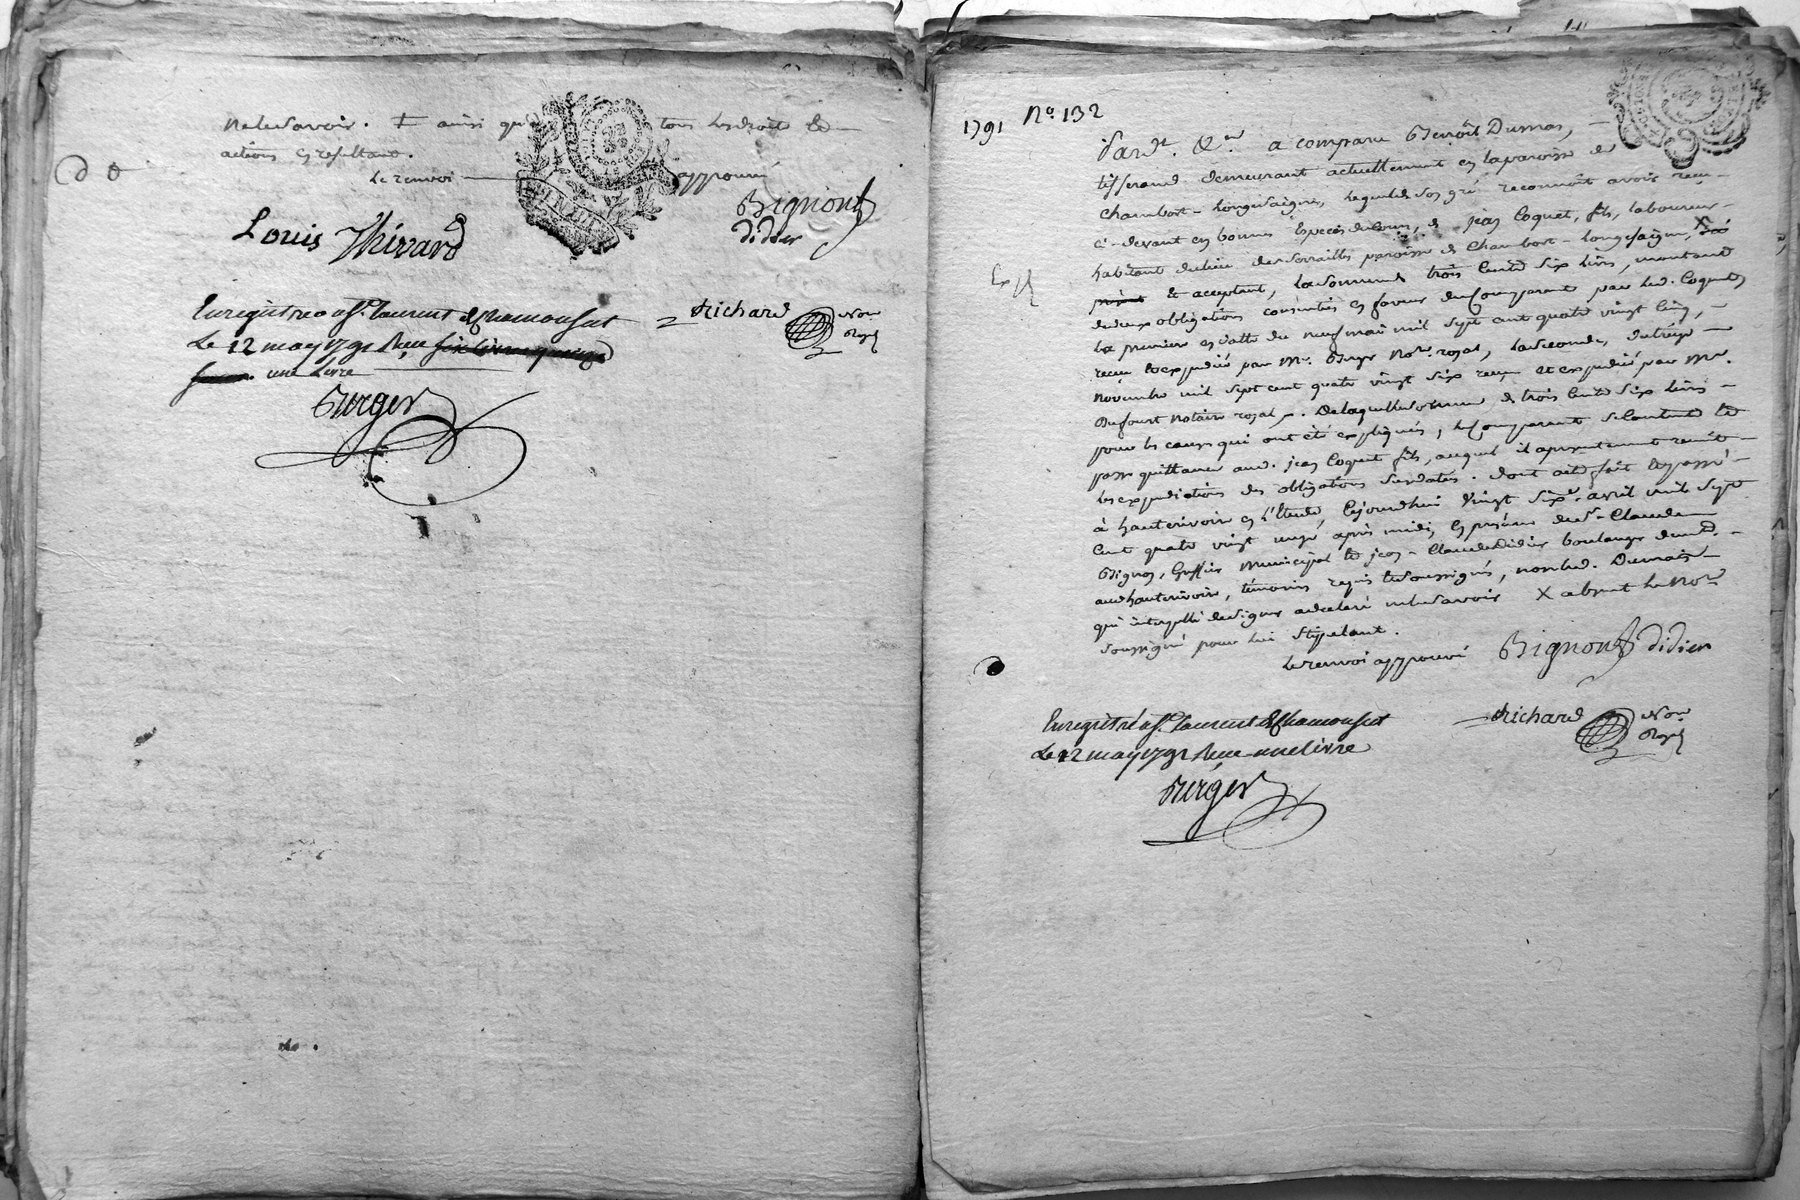 ne le savoir. + ainsi que tous les droits et
actions en resultant.
Le renvoi approuvé
Bignon
didier
Louis Thivard
Enregistré a St. Laurent de Chamousset
Le 12 may 1791 Recu six livres quinze
une Livre
Richard Nore
Royal
Burger
1791 No. 132
Pardt. &ca a comparu Benoît Dumas,
tisserand demeurant actuellement en la paroisse de
Chambost-Longesaigne, lequel de son gré reconnoît avoir reçu
ci-devant en bonnes Espèces du Cours, de jean Coquet, fils, laboureur
habitant du lieu des Verrailles paroisse de Chambost-Longesaigne, X
présent et acceptant, la somme de trois Cents Six livres, montant
de deux obligations consenties en faveur du Comparant par led. Coquet,
La premiere en datte du neuf mai mil Sept cent quatre vingt Cinq,
reçue et expediée par Me. notre. royal, La seconde, du treize
Novembre mil Sept cent quatre vingt Six reçue et expediée par Me.
Dufourt Notaire royal. De laquelle somme de trois Cents Six livres
pour les causes qui ont été expliquées, le Comparant se contente et
passe quittance aud. jean Coquet fils, auquel il a presentement remit
les expeditions des obligations Susdatées. Dont acte fait et passé
à hauterivoire en l'Etude, Cejourd'hui Vingt Six avril mil Sept
Cent quatre vingt onze après midi, En présence de Sr. Claude
Bignon, Greffier Municipal et jean-Claude Didier boulanger dem.
aud. hauterivoire, témoins requis et Soussignés, non led. Dumas
qui interpellé de Signer a declaré ne le Savoir X absent Le Nore
Soussigné pour lui Stipulant.
Le renvoi approuvé Bignon didier
Enregistré a St. Laurent de Chamousset
Le 12 may 1791 Recu une livre
Richard Nore
Royal
Burger